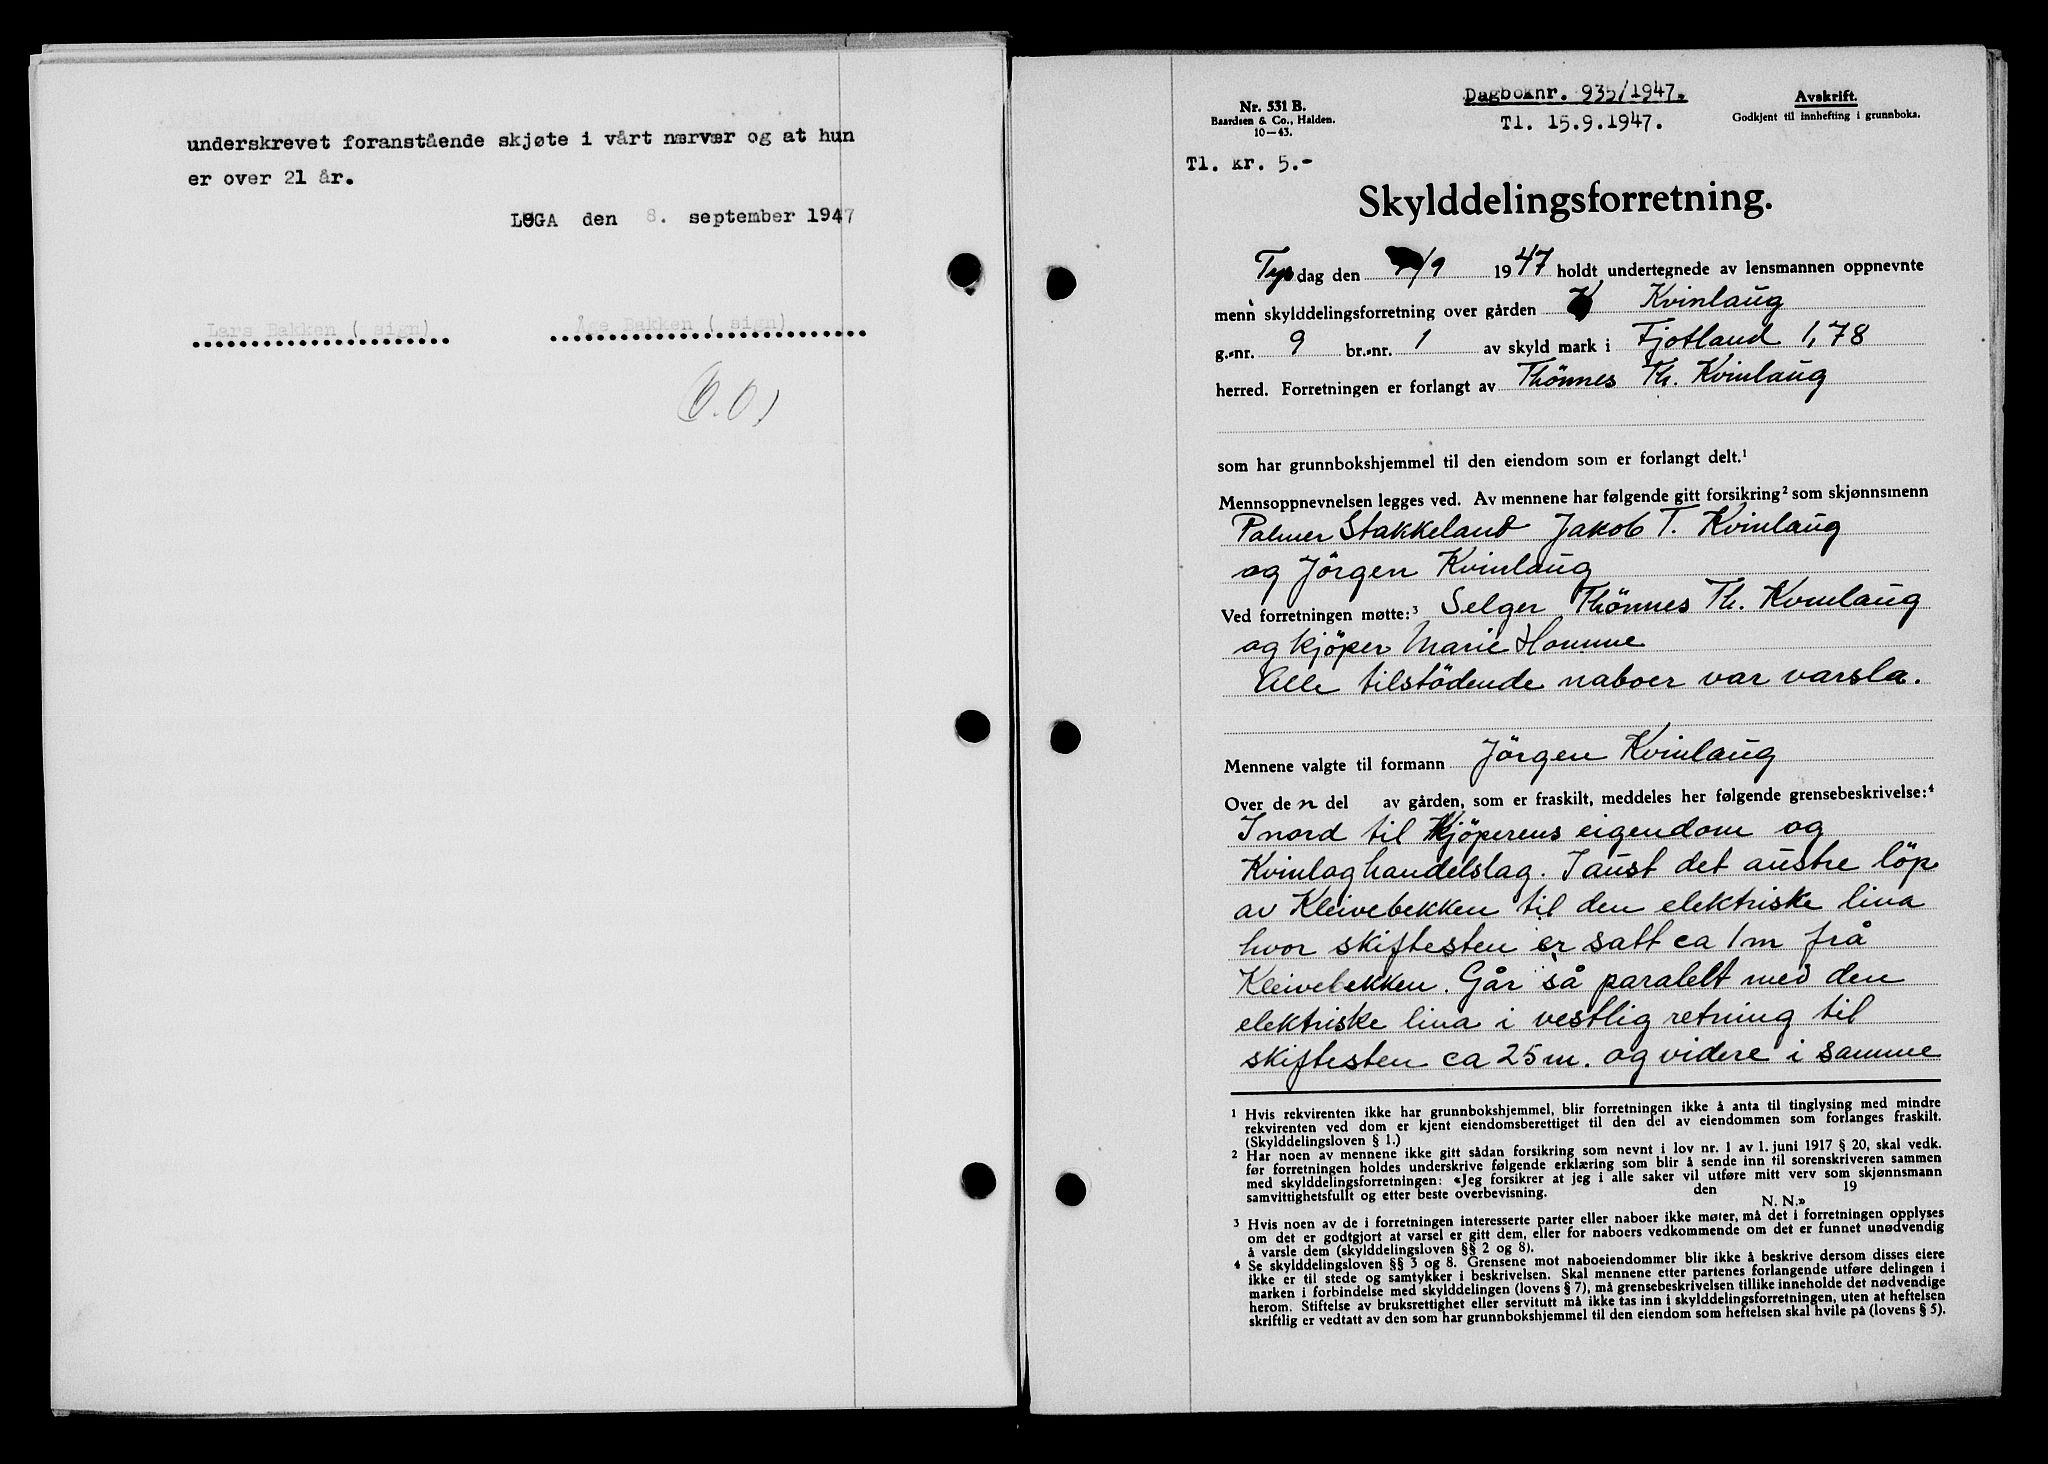 underskrevet foranstående skjøte i vårt nærvær og at hun
er over 21 år.
LØGA den 8. september 1947
Lars Bakken ( sign)
Åge Bakken ( sign)
Nr. 531 B.
Baardsen & Co., Halden.
10—43.
Dagboknr. 935/1947.
Tl. 15.9.1947.
Avskrift.
Godkjent til innhefting i grunnboka.
Tl. kr. 5.-
Skylddelingsforretning.
Tys dag den /9 1947 holdt undertegnede av lensmannen oppnevnte
menn skylddelingsforretning over gården Kvinlaug
g.-nr. 9 br.-nr. 1 av skyld mark i Fjotland 1,78
herred. Forretningen er forlangt av Thönnes Th. Kvinlaug
som har grunnbokshjemmel til den eiendom som er forlangt delt.¹
Mennsoppnevnelsen legges ved. Av mennene har følgende gitt forsikring² som skjønnsmenn
Palmer Stakkeland Jakob T. Kvinlaug
og Jörgen Kvinlaug
Ved forretningen møtte:³ Selger Thönnes Th. Kvinlaug
og kjöper Marie Homme
Alle tilstödende naboer var varsla.
Mennene valgte til formann Jörgen Kvinlaug
Over de n del av gården, som er fraskilt, meddeles her følgende grensebeskrivelse:⁴
I nord til Kjöperens eigendom og
Kvinlog handelslag. I aust det austre löp
av Kleivebekken til den elektriske lina
hvor skiftesten er satt ca 1 m frå
Kleivebekken. Går så paralelt med den
elektriske lina i vestlig retning til
skiftesten ca 25 m. og videre i samme
¹ Hvis rekvirenten ikke har grunnbokshjemmel, blir forretningen ikke å anta til tinglysing med mindre
rekvirenten ved dom er kjent eiendomsberettiget til den del av eiendommen som forlanges fraskilt.
(Skylddelingsloven § 1.)
² Har noen av mennene ikke gitt sådan forsikring som nevnt i lov nr. 1 av 1. juni 1917 § 20, skal vedk.
før forretningen holdes underskrive følgende erklæring som blir å sende inn til sorenskriveren sammen
med skylddelingsforretningen: «Jeg forsikrer at jeg i alle saker vil utføre mitt verv som skjønnsmann
samvittighetsfullt og etter beste overbevisning. den 19
N. N.»
³ Hvis noen av de i forretningen interesserte parter eller naboer ikke møter, må det i forretningen opplyses
om det er godtgjort at varsel er gitt dem, eller for naboers vedkommende om det er funnet unødvendig
å varsle dem (skylddelingsloven §§ 2 og 8).
⁴ Se skylddelingsloven §§ 3 og 8. Grensene mot naboeiendommer blir ikke å beskrive dersom disses eiere
ikke er til stede og samtykker i beskrivelsen. Skal mennene etter partenes forlangende utføre delingen i
marken i forbindelse med skylddelingen (lovens § 7), må grensebeskrivelsen tillike inneholde det nødvendige
herom. Stiftelse av bruksrettighet eller servitutt må ikke tas inn i skylddelingsforretningen, uten at heftelsen
skriftlig er vedtatt av den som har grunnbokshjemmel til den eiendom som heftelsen skal hvile på (lovens § 5).